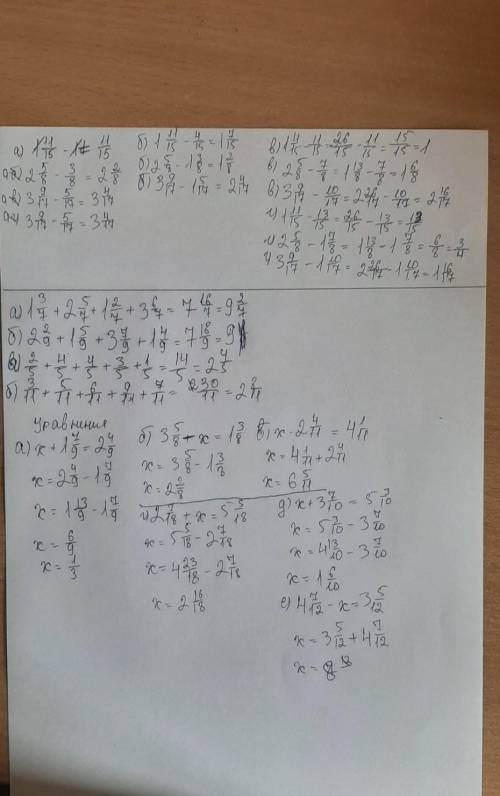 а) 1 4/15 - 1 = 11/15
а) 2 5/8 - 3/8 = 2 2/8
а) 3 9/17 - 5/17 = 3 4/17
а) 3 9/17 - 5/17 = 3 4/17
б) 1 11/15 - 4/15 = 1 7/15
б) 2 5/8 - 1 3/8 = 1 2/8
б) 3 9/17 - 1 5/17 = 2 4/17
в) 1 11/15 - 11/15 = 26/15 - 11/15 = 15/15 = 1
в) 2 5/8 - 7/8 = 1 13/8 - 7/8 = 1 6/8
в) 3 9/17 - 10/17 = 2 26/17 - 10/17 = 2 16/17
г) 1 11/15 - 13/15 = 26/15 - 13/15 = 13/15
г) 2 5/8 - 1 7/8 = 1 13/8 - 1 7/8 = 6/8 = 3/4
г) 3 9/17 - 1 10/17 = 2 26/17 - 1 10/17 = 1 16/17
а) 1 3/7 + 2 5/7 + 1 2/7 + 3 6/7 = 7 16/7 = 9 2/7
б) 2 2/9 + 1 5/9 + 3 7/9 + 1 4/9 = 7 18/9 = 9
в) 2/5 + 4/5 + 4/5 + 3/5 + 1/5 = 14/5 = 2 4/5
б) 3/11 + 5/11 + 6/11 + 9/11 + 7/11 = 30/11 = 2 8/11
уравнения
а) x + 1 7/9 = 2 4/9
x = 2 4/9 - 1 7/9
x = 1 13/9 - 1 7/9
x = 6/9
x = 1/3
б) 3 5/8 - x = 1 3/8
x = 3 5/8 - 1 3/8
x = 2 2/8
в) x - 2 4/11 = 4 1/11
x = 4 1/11 + 2 4/11
x = 6 5/11
г) 2 7/18 + x = 5 5/18
x = 5 5/18 - 2 7/18
x = 4 23/18 - 2 7/18
x = 2 16/18
д) x + 3 7/10 = 5 3/10
x = 5 3/10 - 3 7/10
x = 4 13/10 - 3 7/10
x = 1 6/10
е) 4 7/12 - x = 3 5/12
x = 3 5/12 + 4 7/12
x = 8